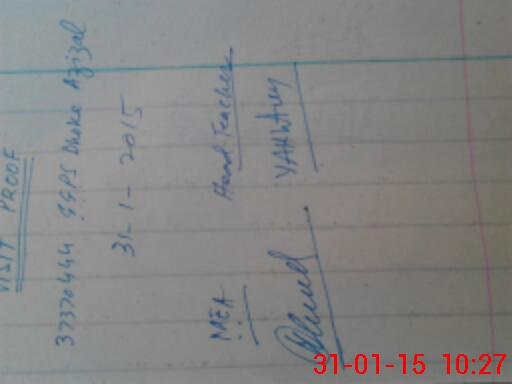 VISIT PROOF
37370444 GGPS Dhoke Azizal
31-1-2015
MEA Head Teacher
31-01-15 10:27